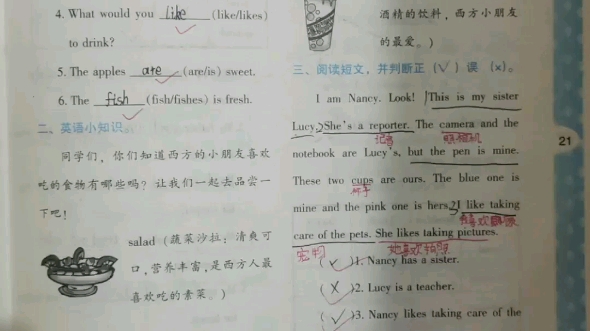 4. What would you like (like/likes)
to drink?
5. The apples are (are/is) sweet.
6. The fish (fish/fishes) is fresh.
二、英语小知识。
同学们，你们知道西方的小朋友喜欢
吃的食物有哪些吗？让我们一起去品尝一
下吧！
salad（蔬菜沙拉：清爽可
口，营养丰富，是西方人最
喜欢吃的素菜。）
酒精的饮料，西方小朋友
的最爱。）
三、阅读短文，并判断正（√）误（×）。
I am Nancy. Look! This is my sister
Lucy. She's a reporter. The camera and the
记者 照相机
notebook are Lucy's, but the pen is mine.
These two cups are ours. The blue one is
杯子
mine and the pink one is hers. I like taking
喜欢
care of the pets. She likes taking pictures.
宠物 她喜欢拍照
(√)1. Nancy has a sister.
(×)2. Lucy is a teacher.
(√)3. Nancy likes taking care of the
21